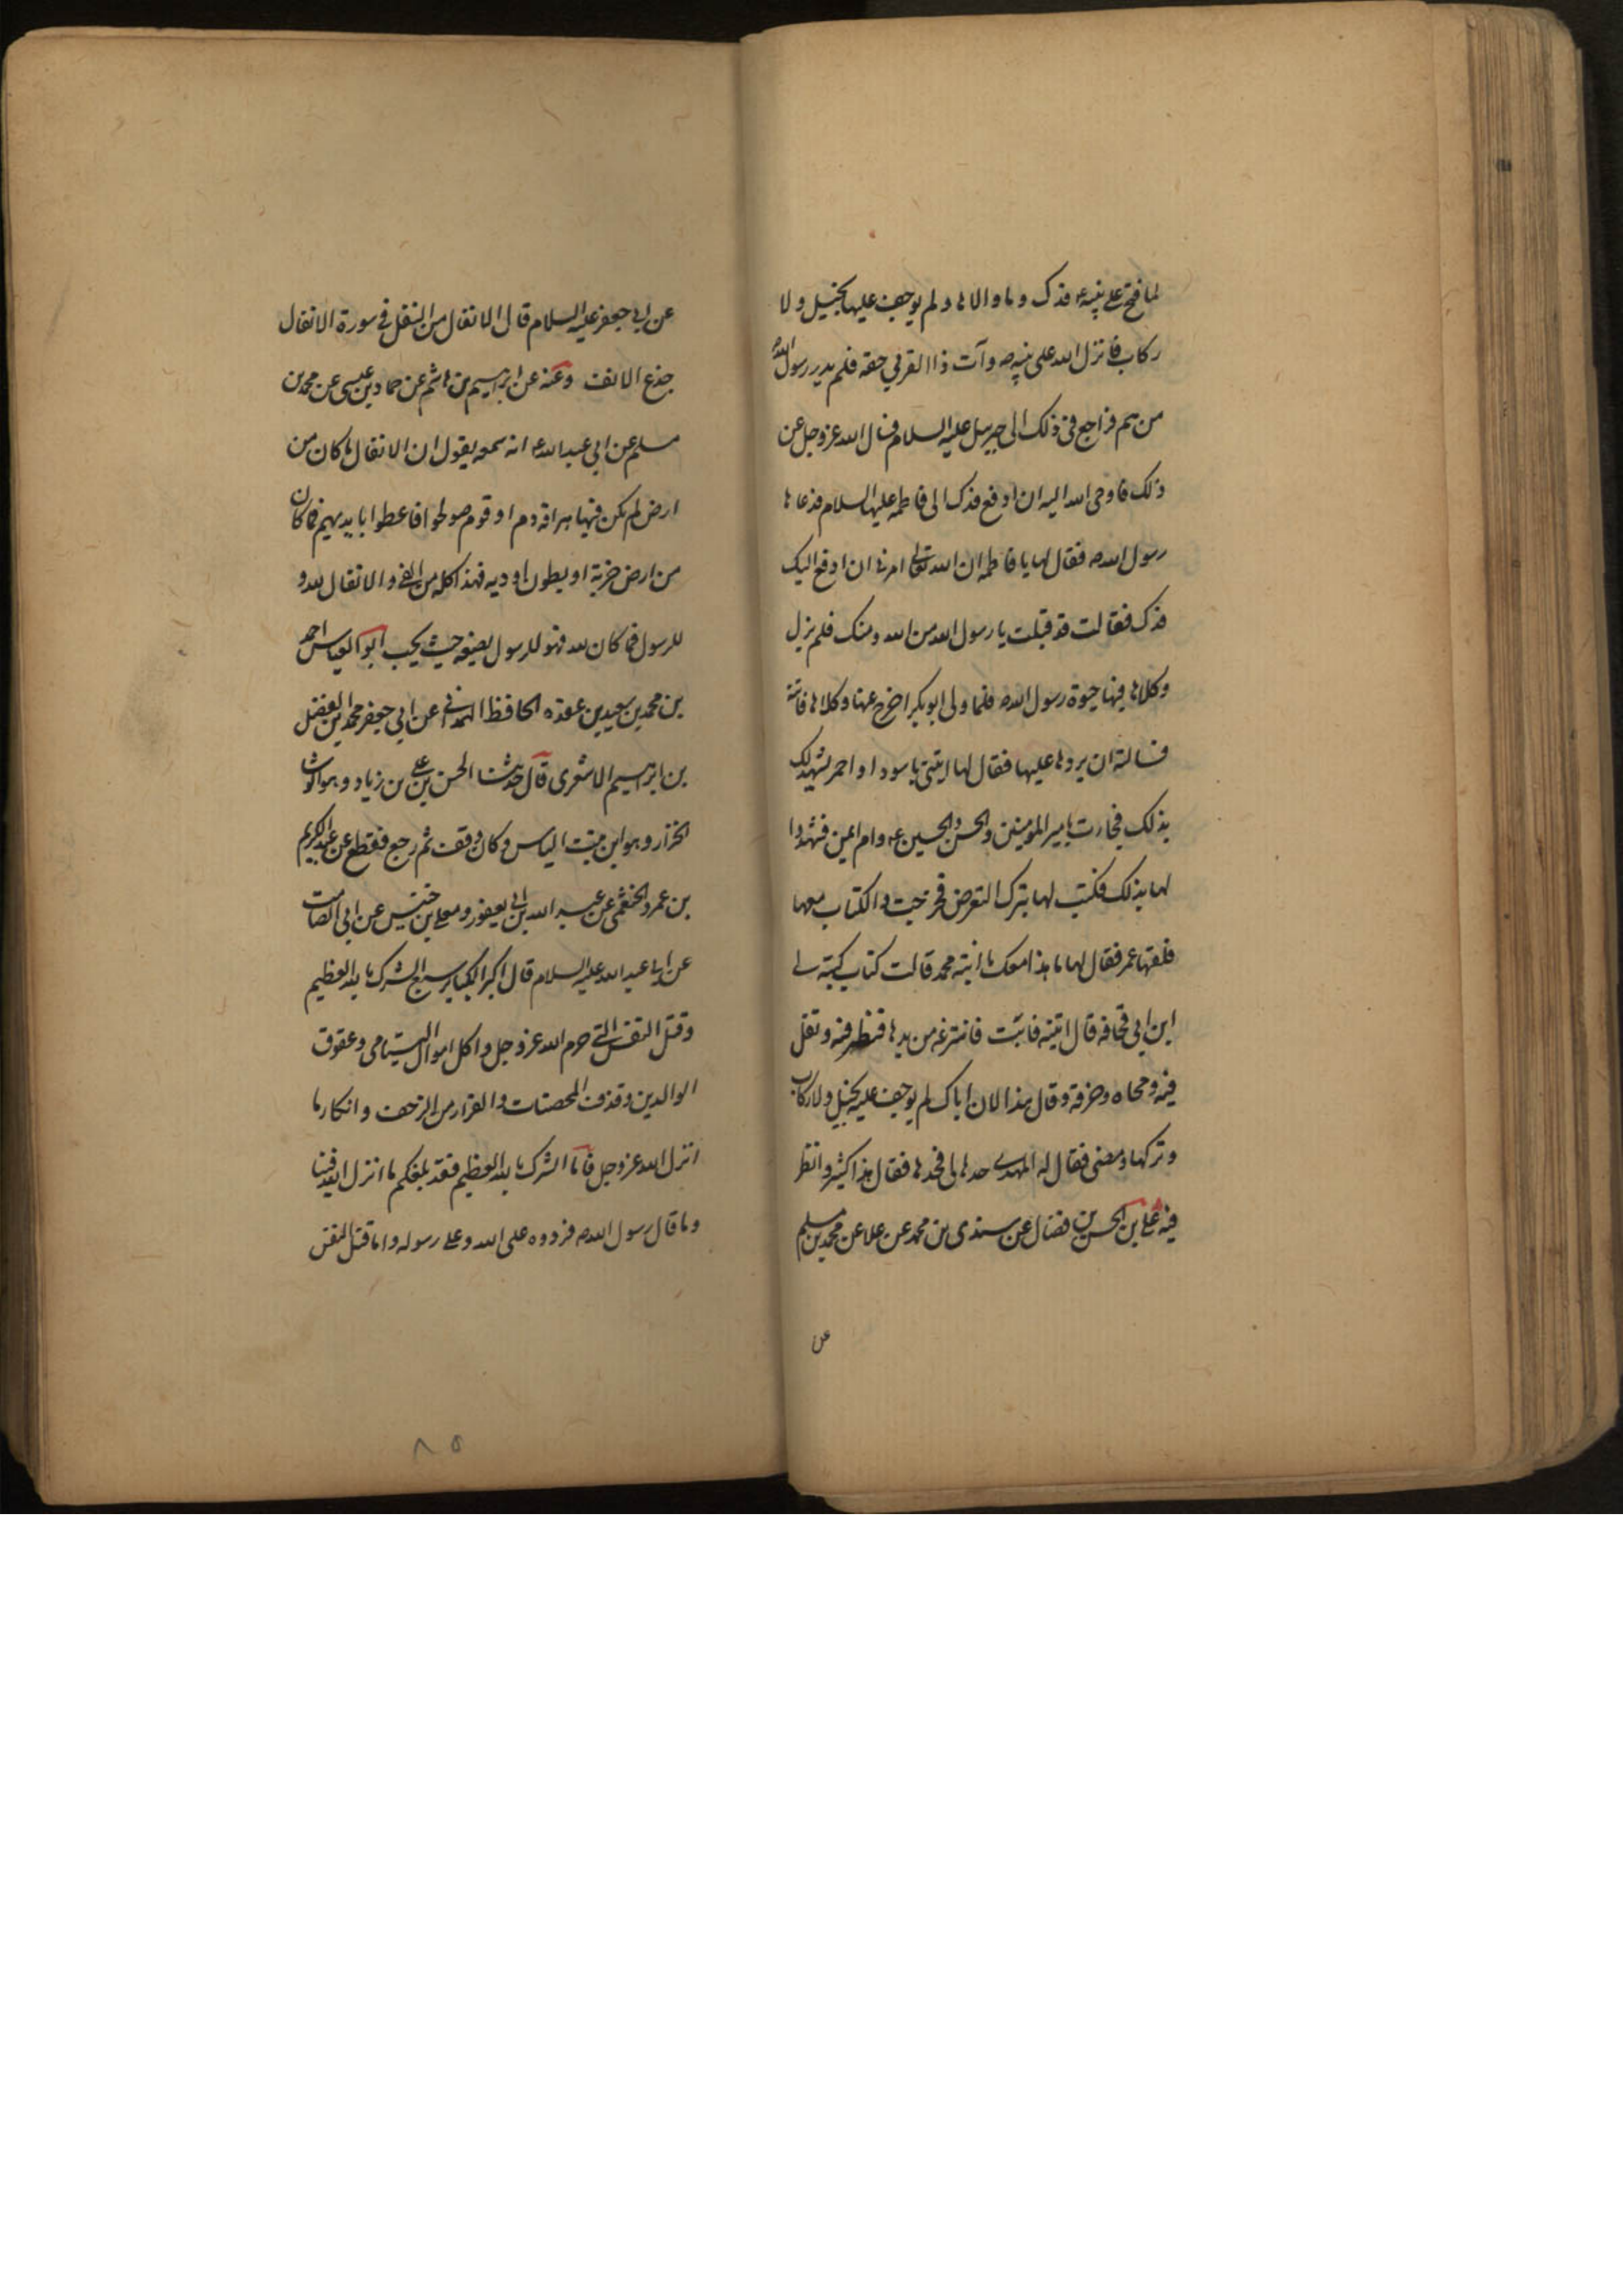 لما فتح على نبيه ع فدك وما والاها ولم يوجف عليها بخيل ولا
ركاب فانزل الله على نبيه ص وآت ذا القربي حقه فلم يدر رسول الله
من هم فراجع في ذلك الى جبرئيل عليه السلام فسال الله عزوجل عن
ذلك فاوحى الله اليه ان ادفع فدك الى فاطمه عليها السلام فدعاها
رسول الله ص فقال لها يا فاطمه ان الله تعالى امرني ان ادفع اليك
فدك فقالت قد قبلت يا رسول الله من الله ومنك فلم يزل
وكلاها فيها حيوة رسول الله ص فلما ولى ابوبكر اخرج عنها وكلاها فاتته
فسالته ان يردها عليها فقال لها ايتني باسود او احمر يشهد لك
بذلك فجاءت بامير المومنين والحسن والحسين ع وام ايمن فشهدوا
لها بذلك فكتب لها بترك التعرض فخرجت والكتاب معها
فلقيها عمر فقال لها ما هذا معك يا ابنته محمد قالت كتاب كتبه لي
ابن ابي قحافه قال ارينيه فابت فانتزعه من يدها فنظر فيه وتفل
فيه ومحاه وخرقه وقال هذا لان اباك لم يوجف عليه بخيل ولا ركاب
وتركها ومضى فقال له المهدي حدها لي فحدها فقال هذا كثير وانظر
فيه على بن الحسن بن فضال عن سندى بن محمد عن علا عن محمد بن مسلم
عن
عن ابي جعفر عليه السلام قال الانفال من النفل في سورة الانفال
جذع الانف وعنه عن ابرهيم بن هاشم عن حماد بن عيسى عن محمد بن
مسلم عن ابي عبد الله ع انه سمعه يقول ان الانفال ما كان من
ارض لم يكن فيها هراقه دم او قوم صولحوا فاعطوا بايديهم فما كان
من ارض خربة او بطون اوديه فهذا كله من الفئ والانفال لله و
للرسول فما كان لله فهو للرسول يضعه حيث يحب ابو العباس احمد
بن محمد بن سعيد بن عقده الحافظ الهمداني عن ابي جعفر محمد بن المفضل
بن ابرهيم الاشعرى قال حدثنا الحسن بن علي بن زياد وهو الوشا
الخزاز وهو ابن بنت الياس وكان وقف ثم رجع فقطع عن عبد الكريم
بن عمرو الخثعمى عن عبد الله بن ابي يعفور ومعلى بن خنيس عن ابي الصامت
عن ابي عبد الله عليه السلام قال اكبر الكباير سبع الشرك بالله العظيم
وقتل النفس التي حرم الله عزوجل واكل اموال اليتامى وعقوق
الوالدين وقذف المحصنات والفرار من الزحف وانكار ما
انزل الله عزوجل فاما الشرك بالله العظيم فقد بلغكم ما انزل الله فينا
وما قال رسول الله ص فردوه على الله وعلى رسوله واما قتل النفس
٨٥